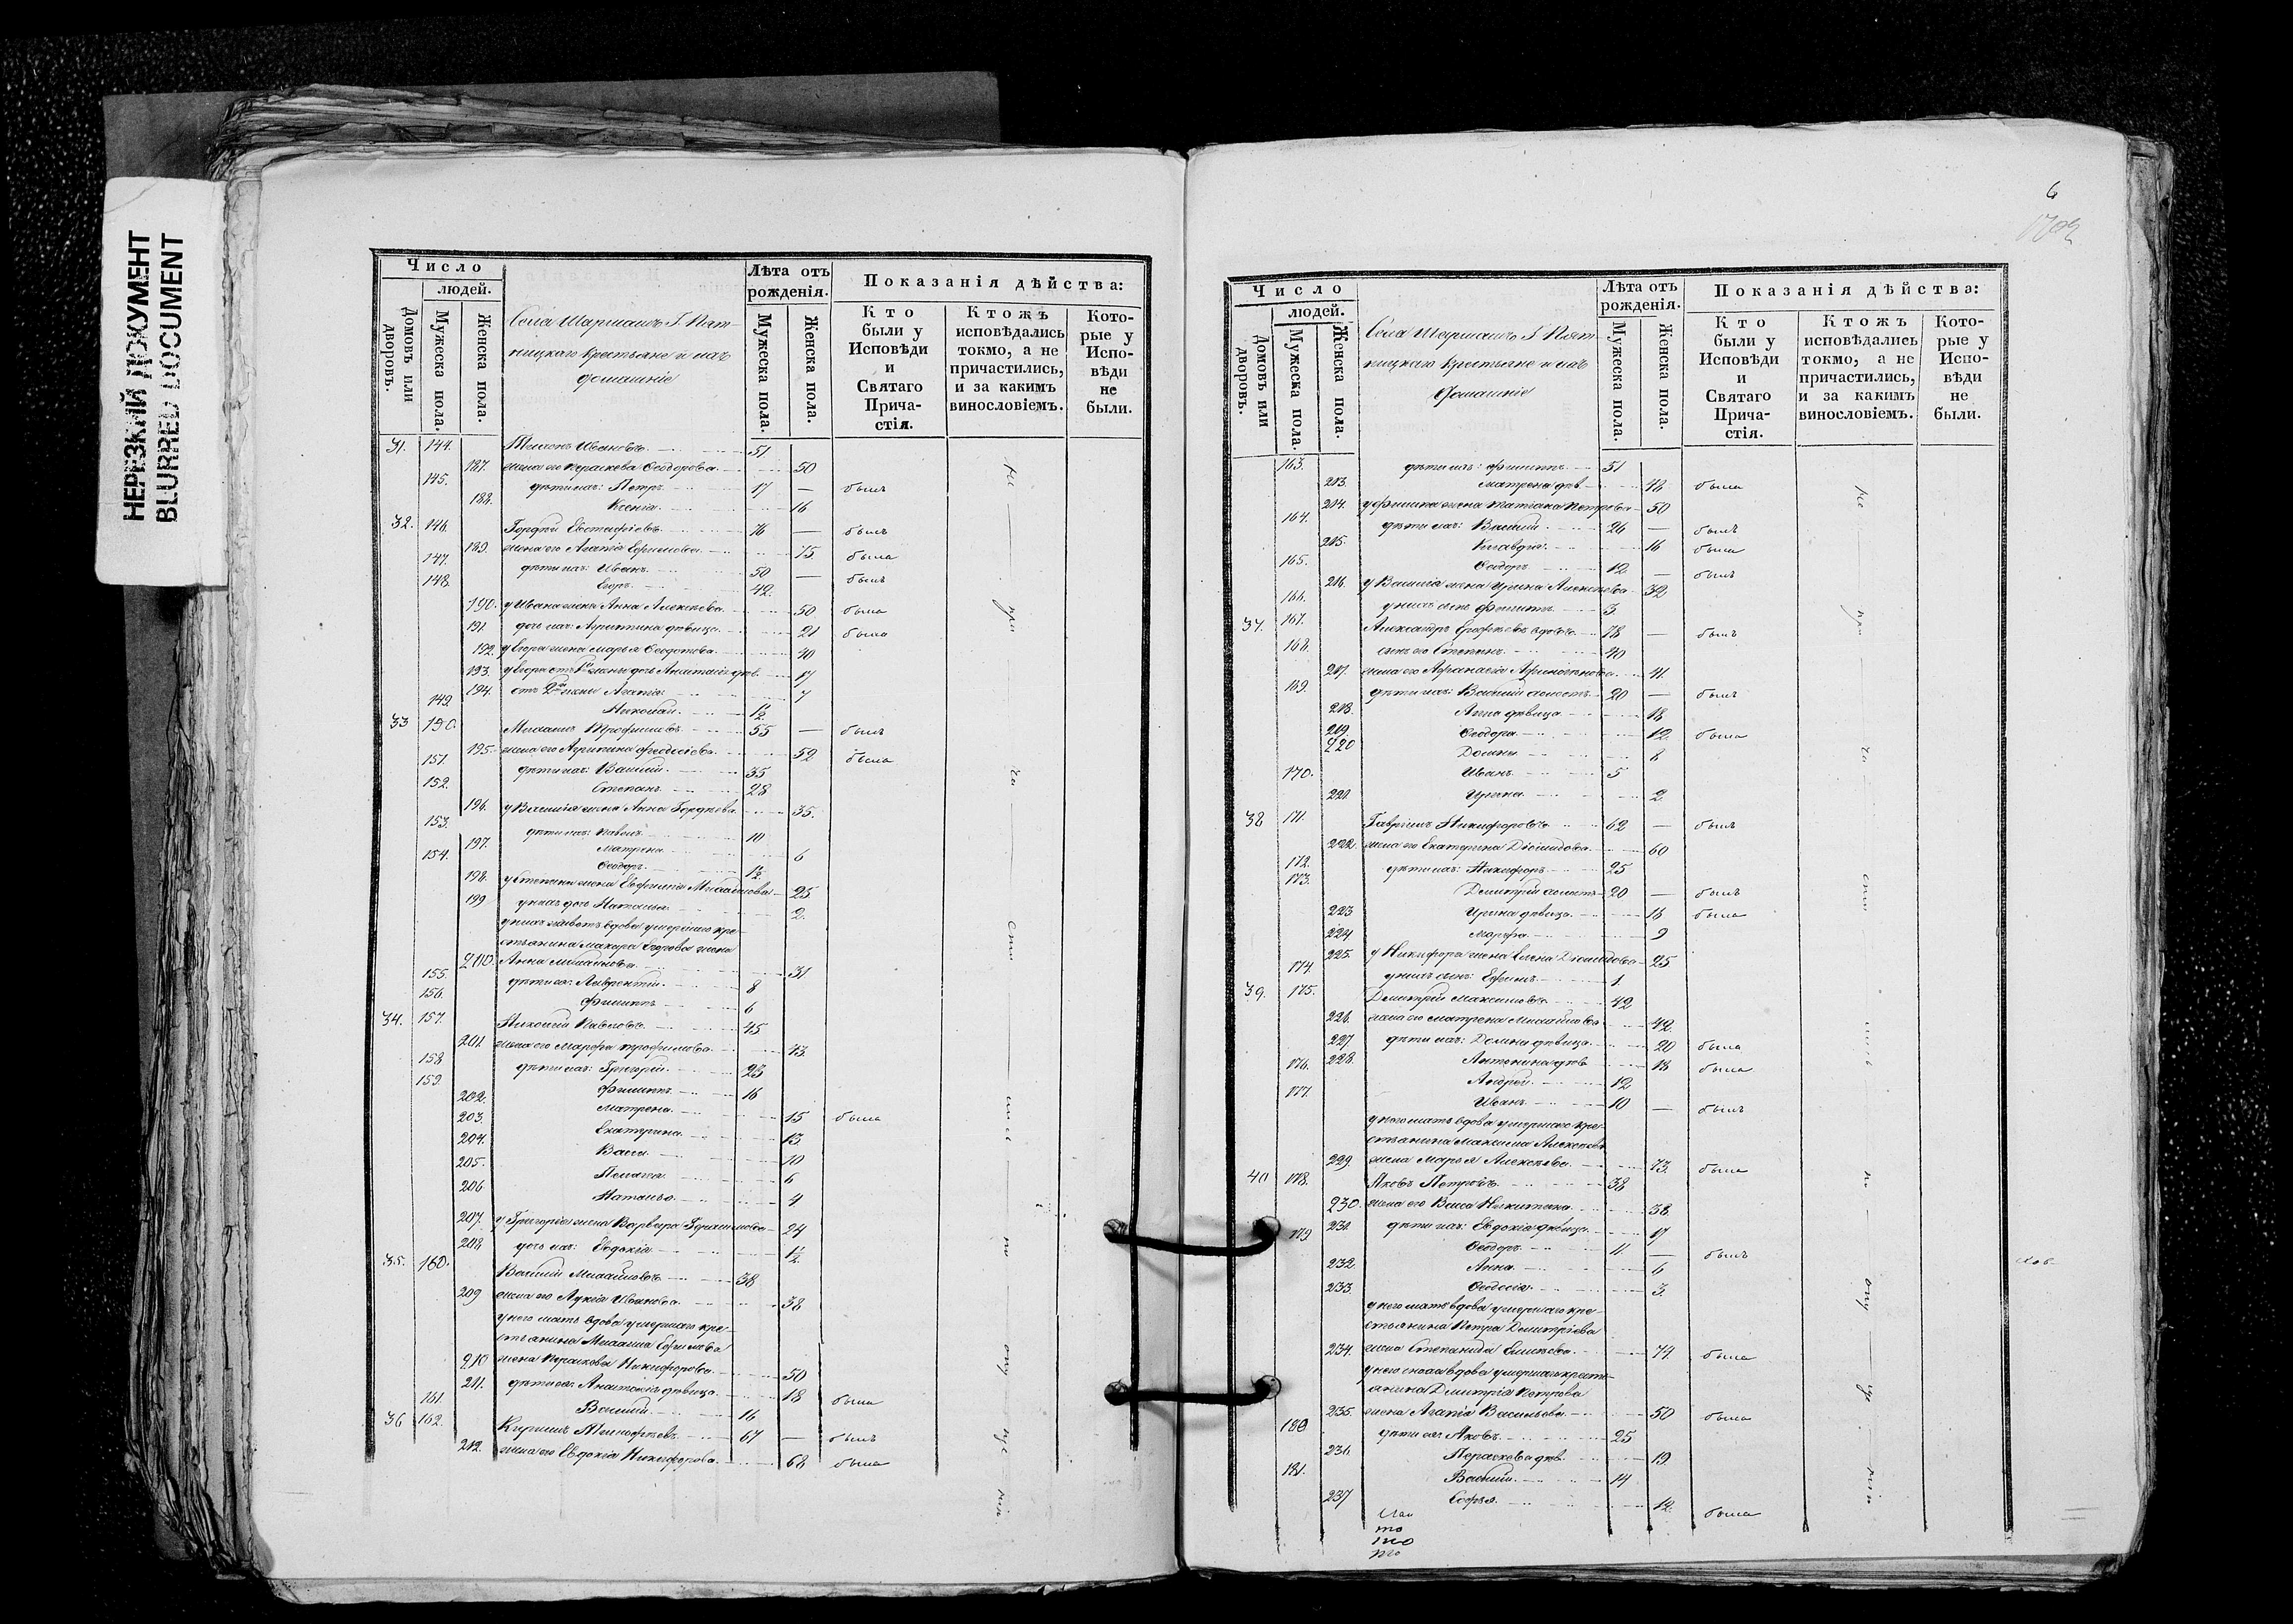 НЕРЕЗКИЙ ДОКУМЕНТ
BLURRED DOCUMENT
Число
людей.
Домовъ или дворовъ.
Мужеска пола.
Женска пола.
Села Шаршамъ Г. Пят-
ницкаго крестьяне и ихъ
домашніе
Лѣта отъ рожденія.
Мужеска пола.
Женска пола.
Показанія дѣйства:
Кто были у Исповѣди и Святаго Прича- стія.
Ктожъ исповѣдались токмо, а не причастились, и за какимъ винословіемъ.
Кото- рые у Испо- вѣди не были.
31. 144. Ивановъ 51
187. жена его Параскева Ѳеодорова 50
145. дѣти ихъ: Петръ 17 — былъ
188. Ксенія 16
32. 146. Гордѣй Евстафіевъ 76 — былъ
189. жена его Агапія Ефимова 75 была
147. дѣти ихъ: Иванъ 50 — былъ
148. Егоръ 42
190. у Ивана жена Анна Алексѣева 50 была
191. дочь ихъ: Агриппина дѣвица 21 была
192. у Егора жена Марья Ѳедотова 40
193. у Егора отъ 1й жены дочь Анастасія дѣв. 17
194. отъ 2й жены Агапія 7
149. Николай 1½
33 150. Михаилъ Трофимовъ 55 — былъ
195. жена его Агрипина Ѳеодосіева 52 была
151. дѣти ихъ: Василій 35
152. Степанъ 28
196. у Василія жена Анна Гордѣева 35.
153. дѣти ихъ: Павелъ 10
197. Матрена 6
154. Ѳеодоръ 1½
198. у Степана жена Евфимія Михайлова 25
199 у нихъ дочь Наталья 2.
у нихъ живетъ вдова умершаго кре-
стьянина Макара Егорова жена
200. Анна Михайлова 31
155. дѣти ея: Лаврентій 8
156. Филиппъ 6
34. 157. Николай Павловъ 45
201 жена его Марфа Трофимова 43
158 дѣти ихъ: Григорій 23
159 Филиппъ 16
202. Матрена 15 была
203. Екатерина 13
204. Васса 10
205. Пелагія 6
206 Наталья 4
207. у Григорія жена Варвара Герасимова 24
208 дочь ихъ: Евдокія 1½
35. 160. Василій Михайловъ 38
209 жена его Лукія Иванова 38
у него мать вдова умершаго кре-
стьянина Михаила Ефимова
210 жена Параскева Никифорова 50
211. дѣти ея Анастасія дѣвица 18 была
161. Василій 16
36 162. Кириллъ Тимофѣевъ 67 — былъ
212. жена его Евдокія Никифорова 68 была
не при ча сти лись по ону же
6
Число
людей.
Домовъ или дворовъ.
Мужеска пола.
Женска пола.
Села Шаршамъ Г. Пят-
ницкаго крестьяне и ихъ
домашніе
Лѣта отъ рожденія.
Мужеска пола.
Женска пола.
Показанія дѣйства:
Кто были у Исповѣди и Святаго Прича- стія.
Ктожъ исповѣдались токмо, а не причастились, и за какимъ винословіемъ.
Кото- рые у Испо- вѣди не были.
163. дѣти ихъ: Филиппъ 51
213. Матрена дѣв. была
214. у Филиппа жена Татіана Петрова 50
164. дѣти ихъ: Василій 26 — былъ
215. Клавдія 16 была
165. Ѳеодоръ 12 — былъ
216. у Василія жена Ирина Алексѣева 32
166. у нихъ сынъ Филиппъ 3
37. 167. Александръ Ерофѣевъ вдовъ 78 — былъ
168. сынъ его Степанъ 40
217. жена его Афанасія 41
169. дѣти ихъ: Василій холостъ 20 — былъ
218. Анна дѣвица 18
219. Ѳеодора 12 была
220 Домна 8
170. Иванъ 5
221. Ирина 2
38 171. Гавріилъ Никифоровъ 62 — былъ
222. жена его Екатерина Діомидова 60
172. дѣти ихъ: Никифоръ 25
173. Димитрій холостъ 20 — былъ
223 Ирина дѣвица 16 была
224. Марфа 9
225. у Никифора жена Елена 25
174. у нихъ сынъ: Ефимъ 1
39. 175. Димитрій Максимовъ 42
226. жена его Матрена Михайлова 42
227 дѣти ихъ: Домна дѣвица 20 была
228. Антонина дѣв. 18 была
176. Андрей 12
177. Иванъ 10 — былъ
у него мать вдова умершаго кре-
стьянина Максима Алексѣева
229. жена Марья Алексѣева 73 была
40 178. Яковъ Петровъ 38
230. жена его Васса Никитина 38
231. дѣти ихъ: Евдокія дѣвица 17
179 Ѳеодоръ 11 — былъ
232. Анна 6
233. Ѳеодосія 3.
у него мать вдова умершаго кре-
стьянина Петра Димитріева
234. жена Степанида 74. была
у него сноха вдова умершаго кресть-
янина Димитрія Петрова
235. жена Агапія Васильева 50 была
180 дѣти ея Яковъ 25
236. Параскева дѣв. 19
181. Василій 14
237 Софья 12. была
не при ча сти лись по ону же